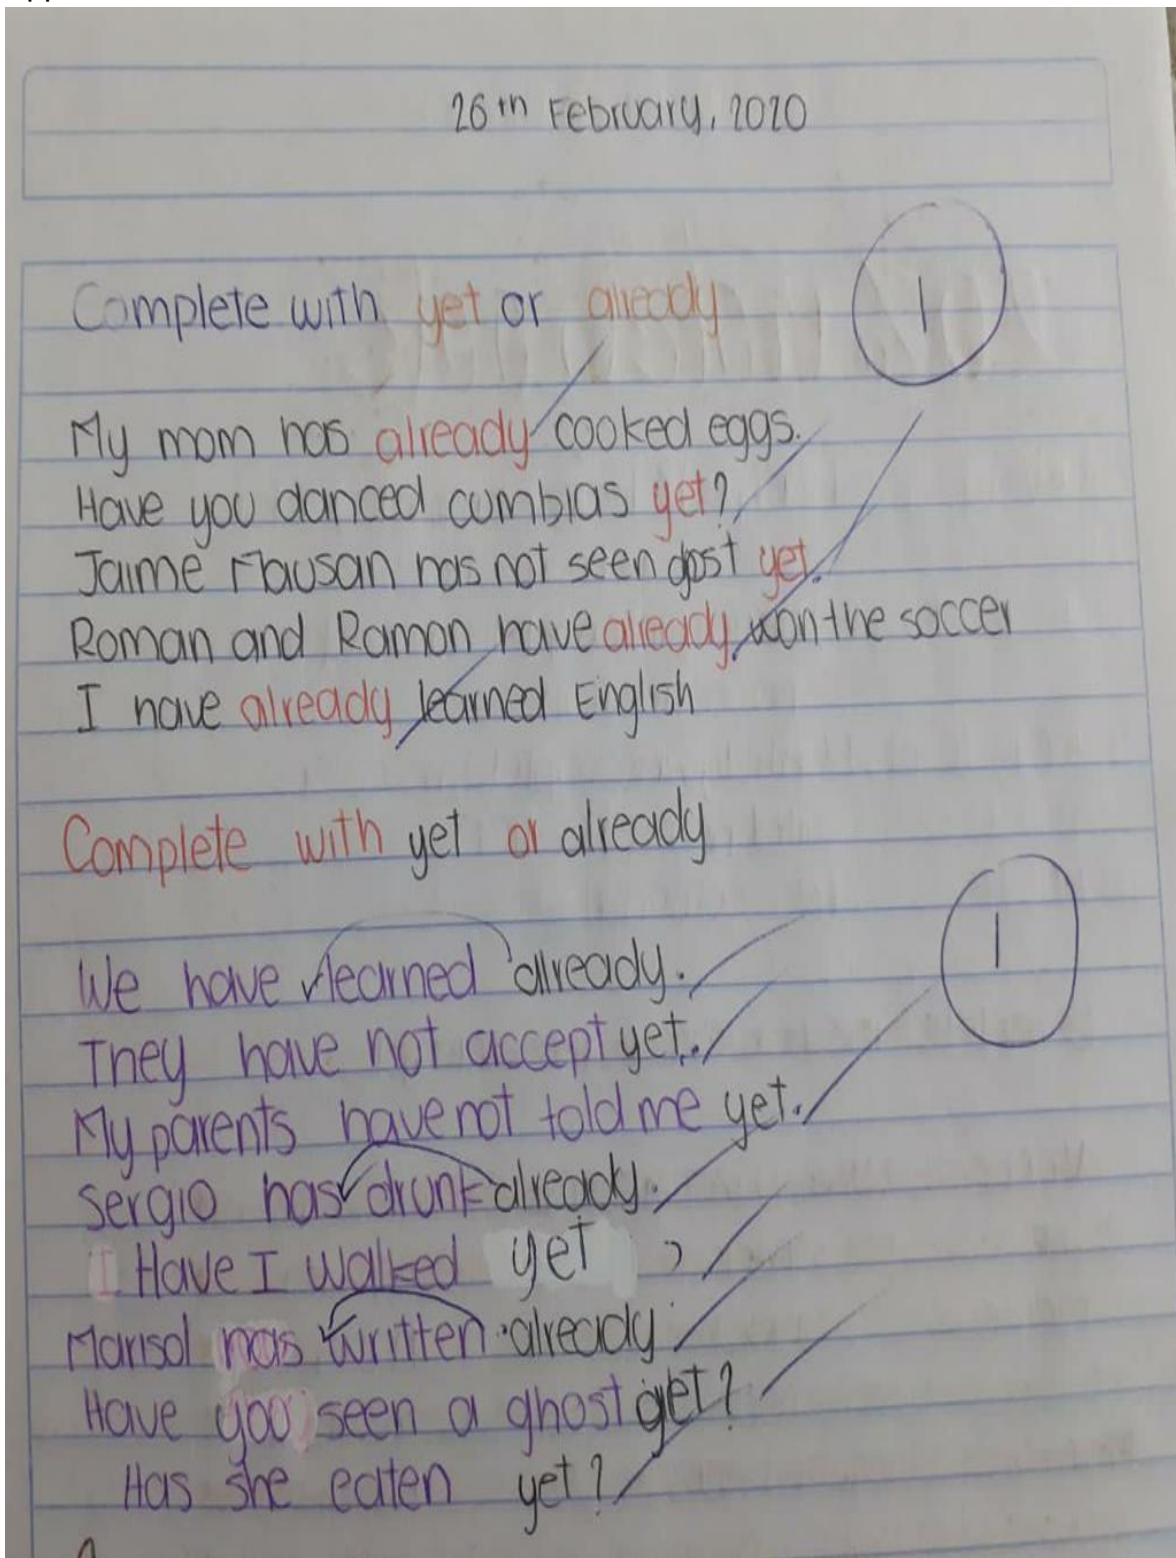 26th February, 2020
Complete with yet or already
1
My mom has already cooked eggs.
Have you danced cumbias yet?
Jaime Mausan has not seen gost yet.
Roman and Ramon have already won the soccer
I have already learned English
Complete with yet or already
1
We have learned already.
They have not accept yet.
My parents have not told me yet.
Sergio has drunk already.
I Have I walked yet ?
Marisol has written already
Have you seen a ghost yet?
Has she eaten yet?